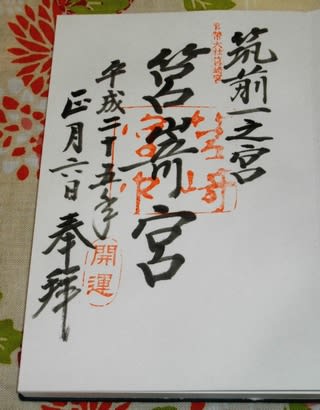 筑前一之宮
官幣大社筥崎宮
筥崎宮
筥崎
宮印
平成二十五年
正月六日
奉拝
開運